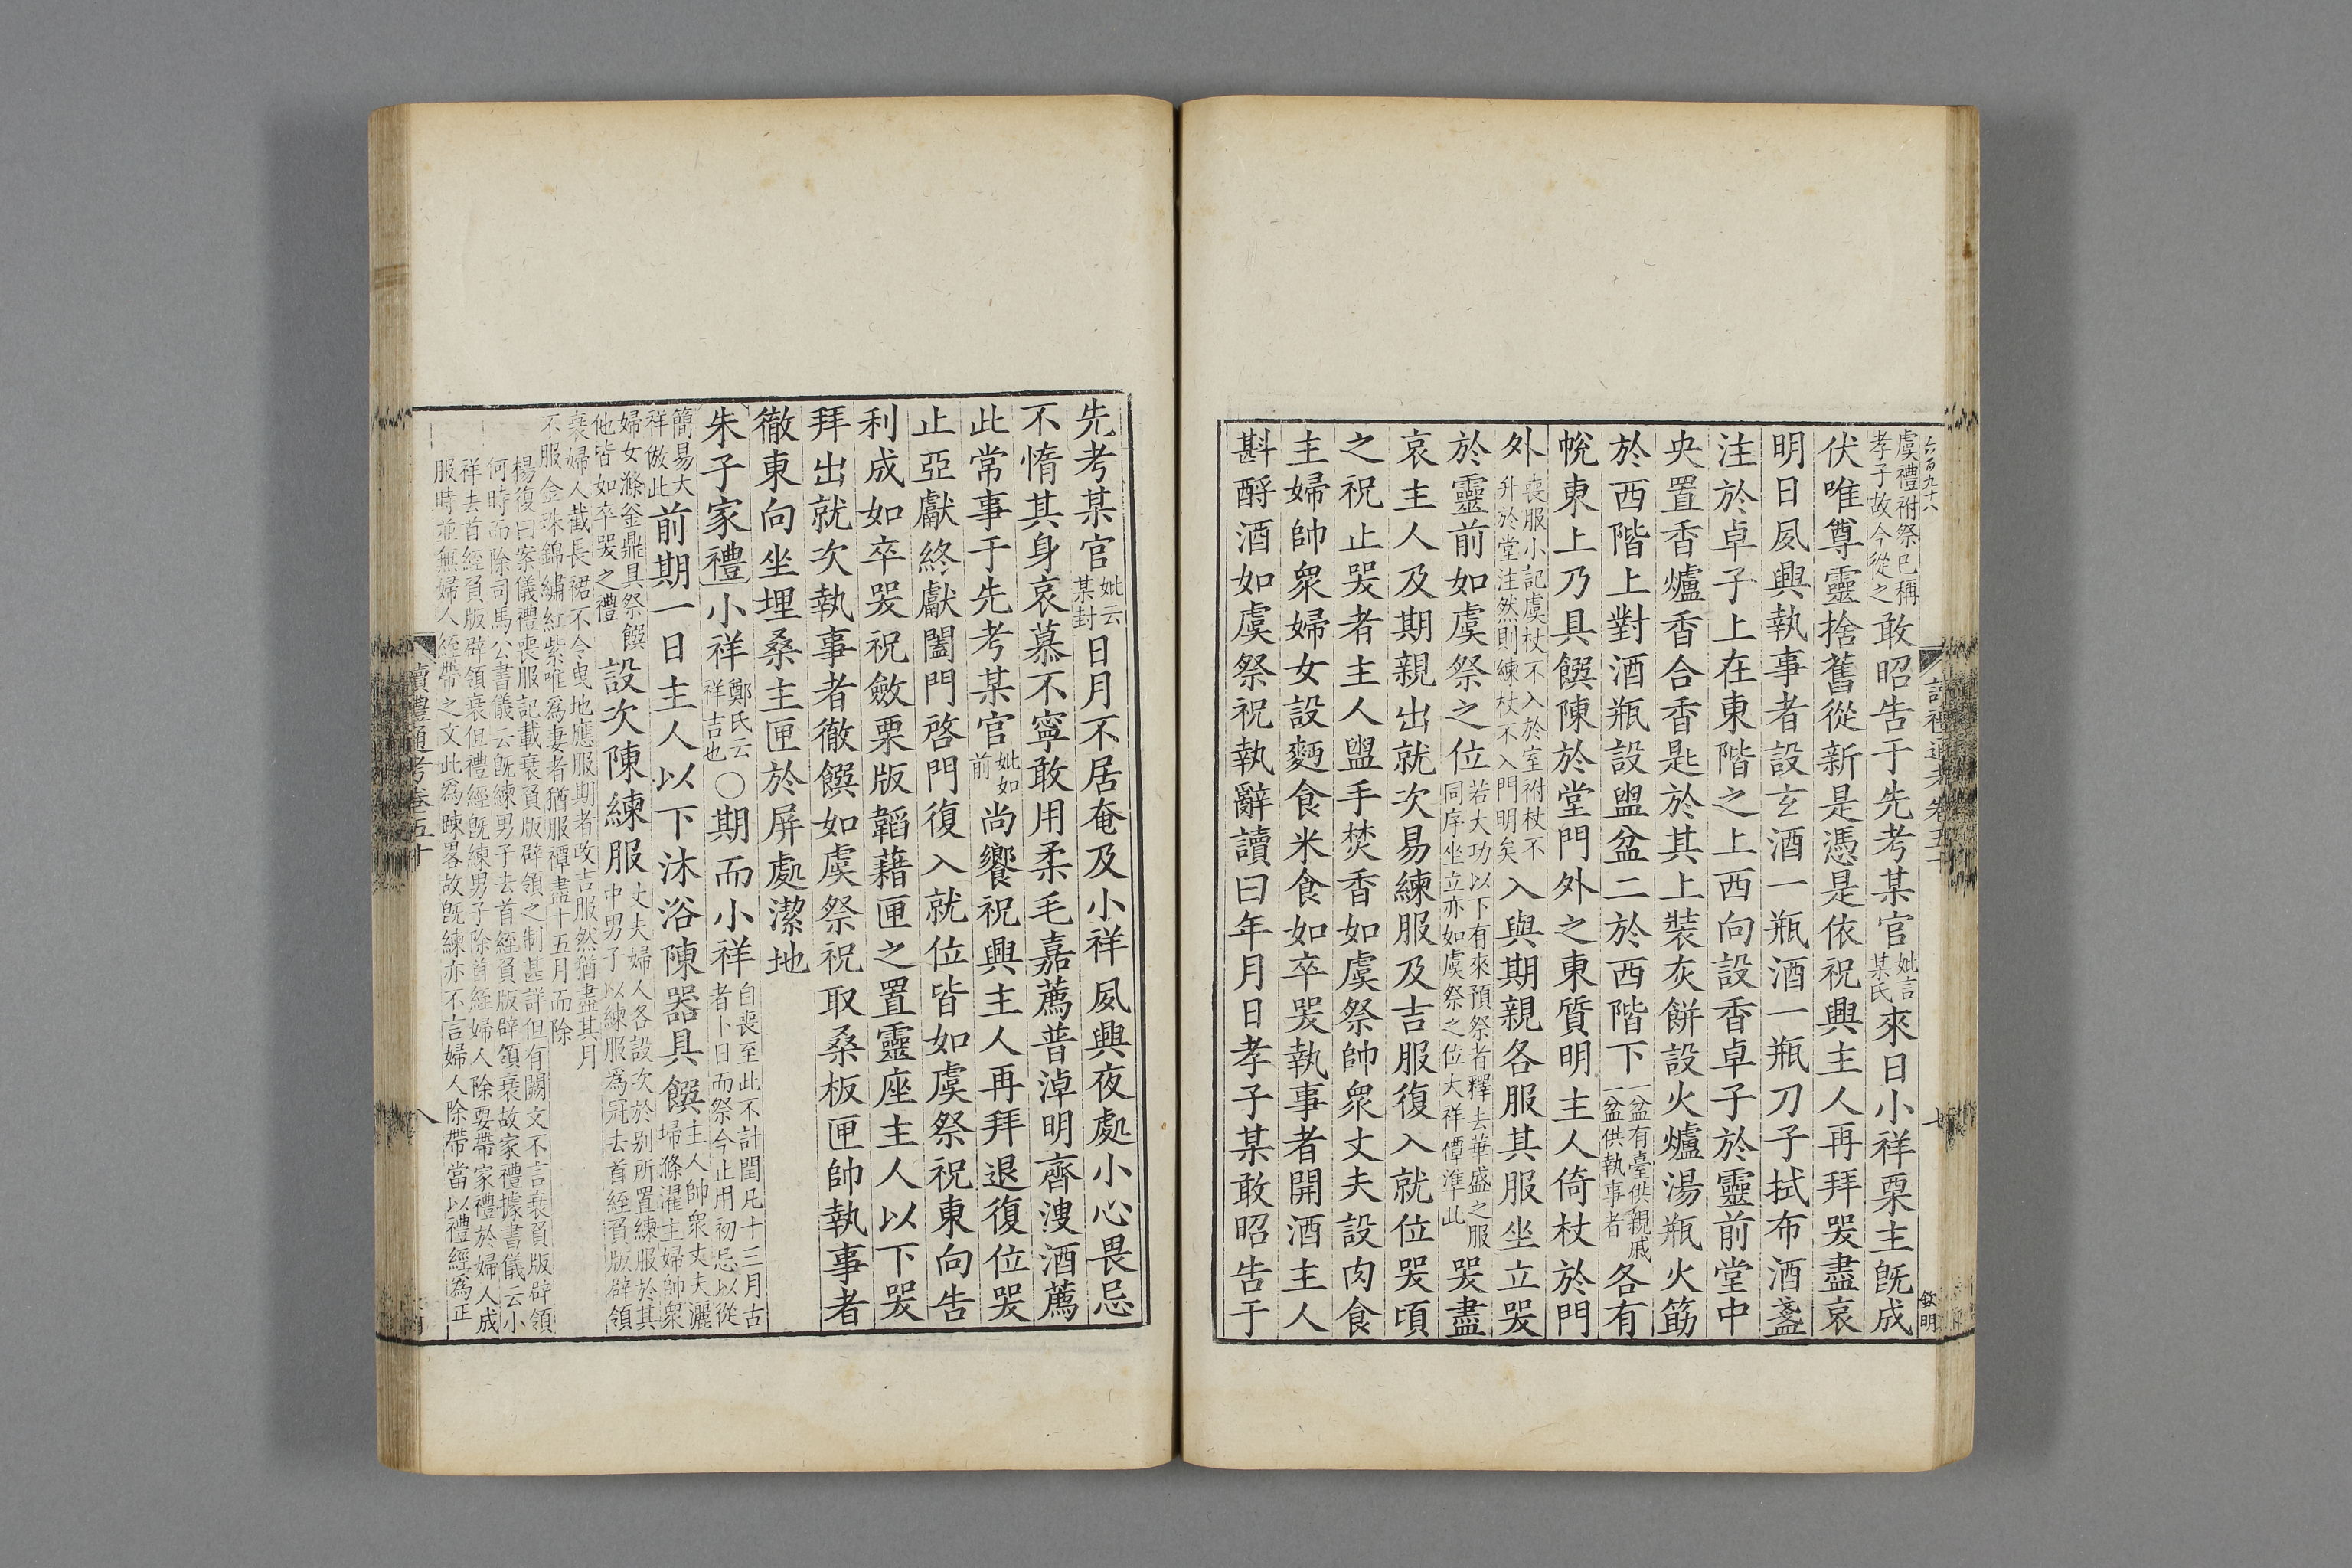 六百九十八
虞禮祔祭已稱孝子故今從之敢昭告于先考某官妣言某氏來日小祥栗主旣成
伏唯尊靈捨舊從新是憑是依祝興主人再拜哭盡哀
明日夙興執事者設玄酒一瓶酒一瓶刀子拭布酒盞
注於卓子上在東階之上西向設香卓子於靈前堂中
央置香爐香合香匙於其上裝灰餅設火爐湯瓶火筯
於西階上對酒瓶設盥盆二於西階下一盆有臺供親戚一盆供執事者各有
帨東上乃具饌陳於堂門外之東質明主人倚杖於門
外喪服小記虞杖不入於室祔杖不升於堂注然則練杖不入門明矣入與期親各服其服坐立哭
於靈前如虞祭之位若大功以下有來預祭者釋去華盛之服同序坐立亦如虞祭之位大祥禫準此哭盡
哀主人及期親出就次易練服及吉服復入就位哭頃
之祝止哭者主人盥手焚香如虞祭帥衆丈夫設肉食
主婦帥衆婦女設麪食米食如卒哭執事者開酒主人
斟酹酒如虞祭祝執辭讀曰年月日孝子某敢昭告于
讀禮通考卷五十
七
欽明
先考某官妣云某封日月不居奄及小祥夙興夜處小心畏忌
不惰其身哀慕不寧敢用柔毛嘉薦普淖明齊溲酒薦
此常事于先考某官妣如前尚饗祝興主人再拜退復位哭
止亞獻終獻闔門啓門復入就位皆如虞祭祝東向告
利成如卒哭祝斂栗版韜藉匣之置靈座主人以下哭
拜出就次執事者徹饌如虞祭祝取桑板匣帥執事者
徹東向坐埋桑主匣於屏處潔地
朱子家禮小祥鄭氏云祥吉也○期而小祥自喪至此不計閏凡十三月古者卜日而祭今止用初忌以從
簡易大祥倣此前期一日主人以下沐浴陳器具饌主人帥衆丈夫灑埽滌濯主婦帥衆
婦女滌釜鼎具祭饌他皆如卒哭之禮設次陳練服丈夫婦人各設次於别所置練服於其中男子以練服爲冠去首絰負版辟領
衰婦人截長裙不令曳地應服期者改吉服然猶盡其月不服金珠錦繡紅紫唯爲妻者猶服禫盡十五月而除
楊復曰案儀禮喪服記載衰負版辟領之制甚詳但有闕文不言衰負版辟領
何時而除司馬公書儀云旣練男子去首絰負版辟領衰故家禮據書儀云小
祥去首絰負版辟領衰但禮經旣練男子除首絰婦人除要帶家禮於婦人成
服時並無婦人絰帶之文此爲踈畧故旣練亦不言婦人除帶當以禮經爲正
讀禮通考卷五十
八